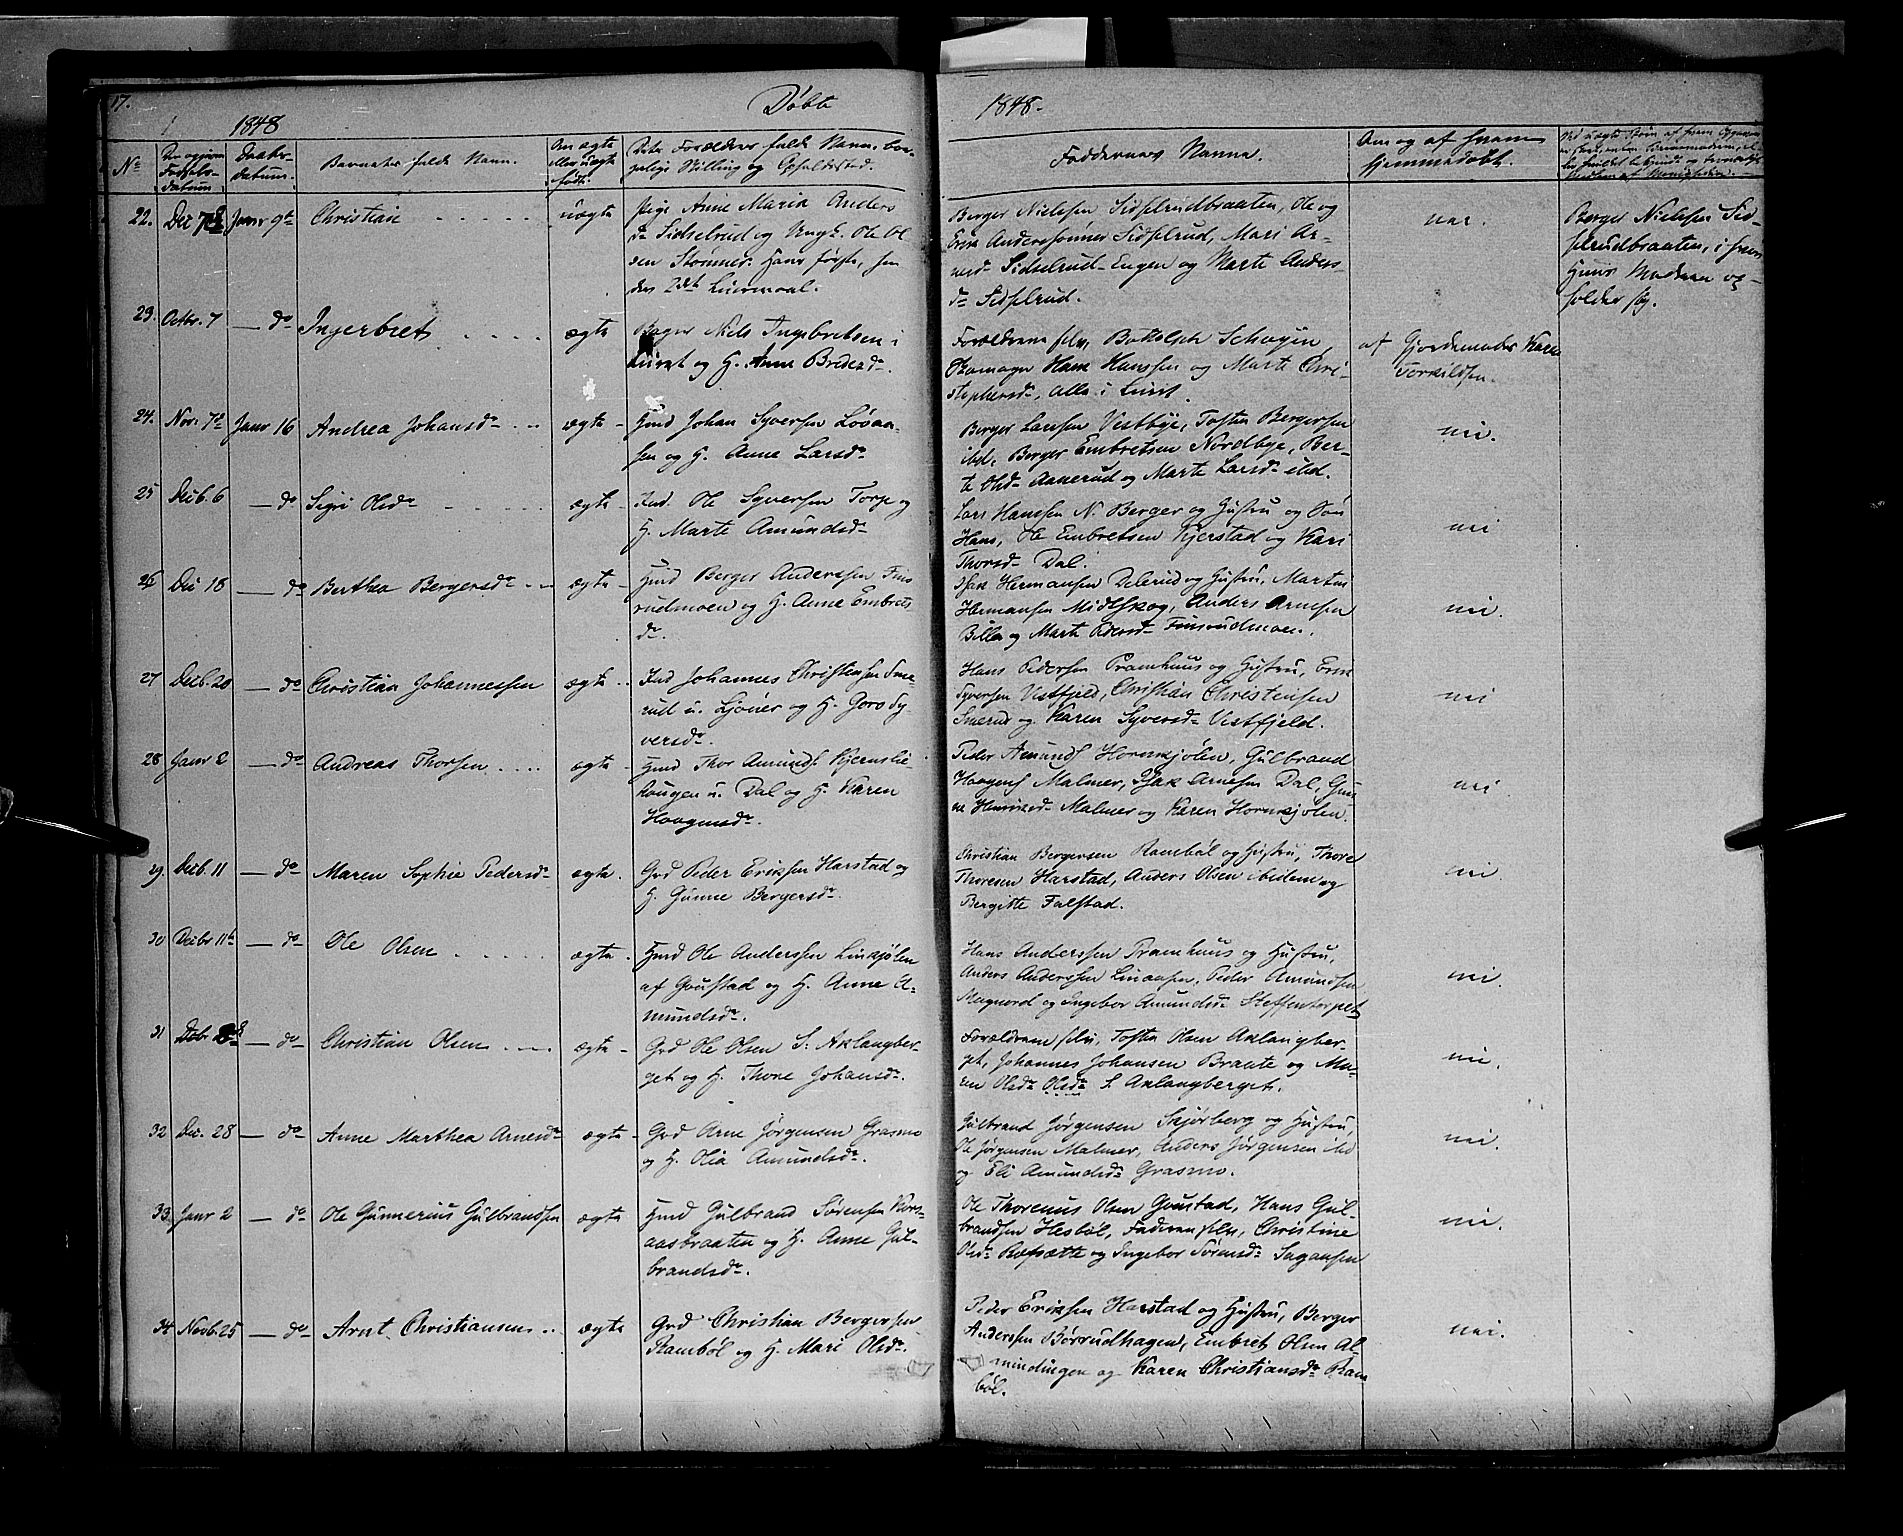 17.
1848
Døbte
1848.
No
Den opgivne Fødsels-datum
Daabs-datum.
Barnets fulde Navn.
Om ægte eller uægte født.
Dets Forældres fulde Navn, bor-
gelige Stilling og Opholdssted.
Faddernes Navne.
Om og af hvem
hjemmedøbt.
22. Dec Janr 9de Christian uægte Pige Anne Maria Anders
da Sidselrud og Ungk. Ole
Stommer. Hans første, hen
des 2det Leiermaal.
Berger Nielsen Sidselrudbraaten, Ole og
Erik Anderssønner Sidselrud, Mari Ar-
nesd Sidselrud-Engen og Marte Anders-
da Sidselrud.
nei.
Berger Nielsen Sid-
selrudbraaten, i hvis
Huus Moderen op-
holder sig.
23. Octbr. 7 — do Ingerbret ægte Niels Ingebretsen i
og H. Anne Bredesda.
Forældrene selv, Schøyen,
Hans Hanssen og Marte Chri-
stophersd, alle i
af Gjordemoder Karen
Torkildsen.
24. Nov. 7de Janr 16 Andrea Johansda ægte Hmd Johan Syversen Løvaa-
sen og H. Anne Larsda
Berger Larsen Vestbye, Tosten Bergersen
ibd, Berger Embretsen Nordbye, Ber-
te Olsd Aanerud og Marte Larsda ibd.
nei.
25 Decb. 6 — do Sigri Olsda ægte Ind. Ole Syversen Torp og
H. Marte Amundsda
Lars Hanssen N. Berger og Hustru og Søn
Hans, Ole Embretsen Kjerstad og Kari
Thorsda Dal.
nei
26 Dec 18 — do Berthea Bergersda ægte Hmd Berger Anderssen Fins
rudmoen og H. Anne Embrets
da.
Isak Hermansen Delerud og Hustru, Martin
Hermansen Midtskog, Anders Arnesen
Billa og Marte Pedersd Finsrudmoen.
nei.
27 Decb. 20 — do Christian Johannessen ægte Ind Johannes Christensen Sne-
rud u. Ljøner og H. Goro Sy-
versda.
Hans Pedersen Pramhuus og Hustru, Erik
Syversen Vestfjeld, Christian Christensen
Snerud og Karen Syversda Vestfjeld.
nei
28 Janr 2 — do Andreas Thorsen ægte Hmd Thor Amunds. Kjernslie-
haugen u. Dal og H. Karen
Haagensda.
Peder Amunds Hornkjølen, Gulbrand
Haagens Malmer, Isak Arnesen Dal, Gun
Henriksd Malmer og Karen Hornkjølen.
nei
29 Decb. 11 — do Maren Sophie Pedersda ægte. Grd Peder Eriksen Harstad og
H. Gunne Bergersda.
Christian Bergersen Rambøl og Hustru, Thore
Thoresen Harstad, Anders Olsen ibidem og
Bergitte Falstad.
nei.
30 Decbr 11te — do Ole Olsen ægte. Hmd Ole Anderssen Linkjølen
af Goustad og H. Anne A-
mundsda.
Hans Anderssen Pramhuus og Hustru,
Anders Anderssen Linaasen, Peder Amundsen
Magnord og Ingebor Amundsda Steffenstorpet
nei.
31 — do Christian Olsen ægte Grd Ole Olsen S. Aklangber-
get og H. Thone Johansda.
Forældrene selv, Tosten Olsen Aklangber-
get, Johannes Johansen Braate og Ma-
ren Olsda Olsda S. Aklangberget.
nei.
32 Dec. 28 — do Anne Marthea Arnesda ægte Grd Arne Jørgensen Grasmo
og H. Olia Amundsda.
Gulbrand Jørgensen Skjørberg og Hustru,
Ole Jørgensen Malmer, Anders Jørgensen ibd
og Eli Amundsda Grasmo.
nei.
33. Janr 2 — do Ole Gunnerius Gulbrandsen ægte Hmd Gulbrand Sørensen Kors-
aasbraaten og H. Anne Gul-
brandsda.
Ole Thorenius Olsen Goustad, Hans Gul-
brandsen Hesbøl, Faderen selv, Christine
Olsda Rotsætte og Ingebor Sørensda Sagaasen
nei.
34 Novb. 25 — do Arnt Christiansen ægte Grd Christian Bergersen
Rambøl og H. Mari Olsda.
Peder Eriksen Harstad og Hustru, Berger
Anderssen Børrudhagen, Embret Olsen Al-
mindingen og Karen Christiansda Ram
bøl.
nei.